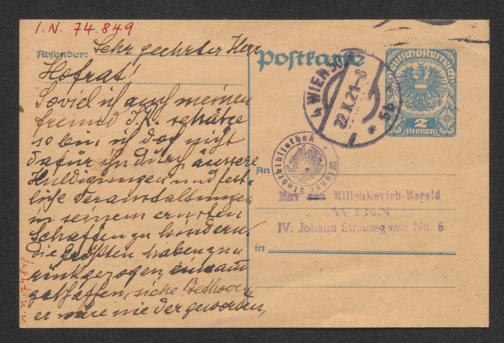 I.N. 74.849
Absender: Sehr geehrter Herr
Hofrat!
Soviel ich auch meinen
freund J.K. schätze
so bin ich doch nicht
dafür ihn durch äussere
Huldigungen und fest-
liche Veranstaltungen
in seinem ernsten
Schaffen zu hindern
die größten haben zu
rückgezogen einsam
geschaffen, siehe Beethoven
er wäre nie der geworden,
Postkarte
Deutschösterreich
2
(Kronen)
4 WIEN 50
22.X.21-8
* 5b *
An
Wiener Stadtbibliothek
Max von Millenkovich-Morold
WIEN
IV. Johann Straussgasse No. 6
in